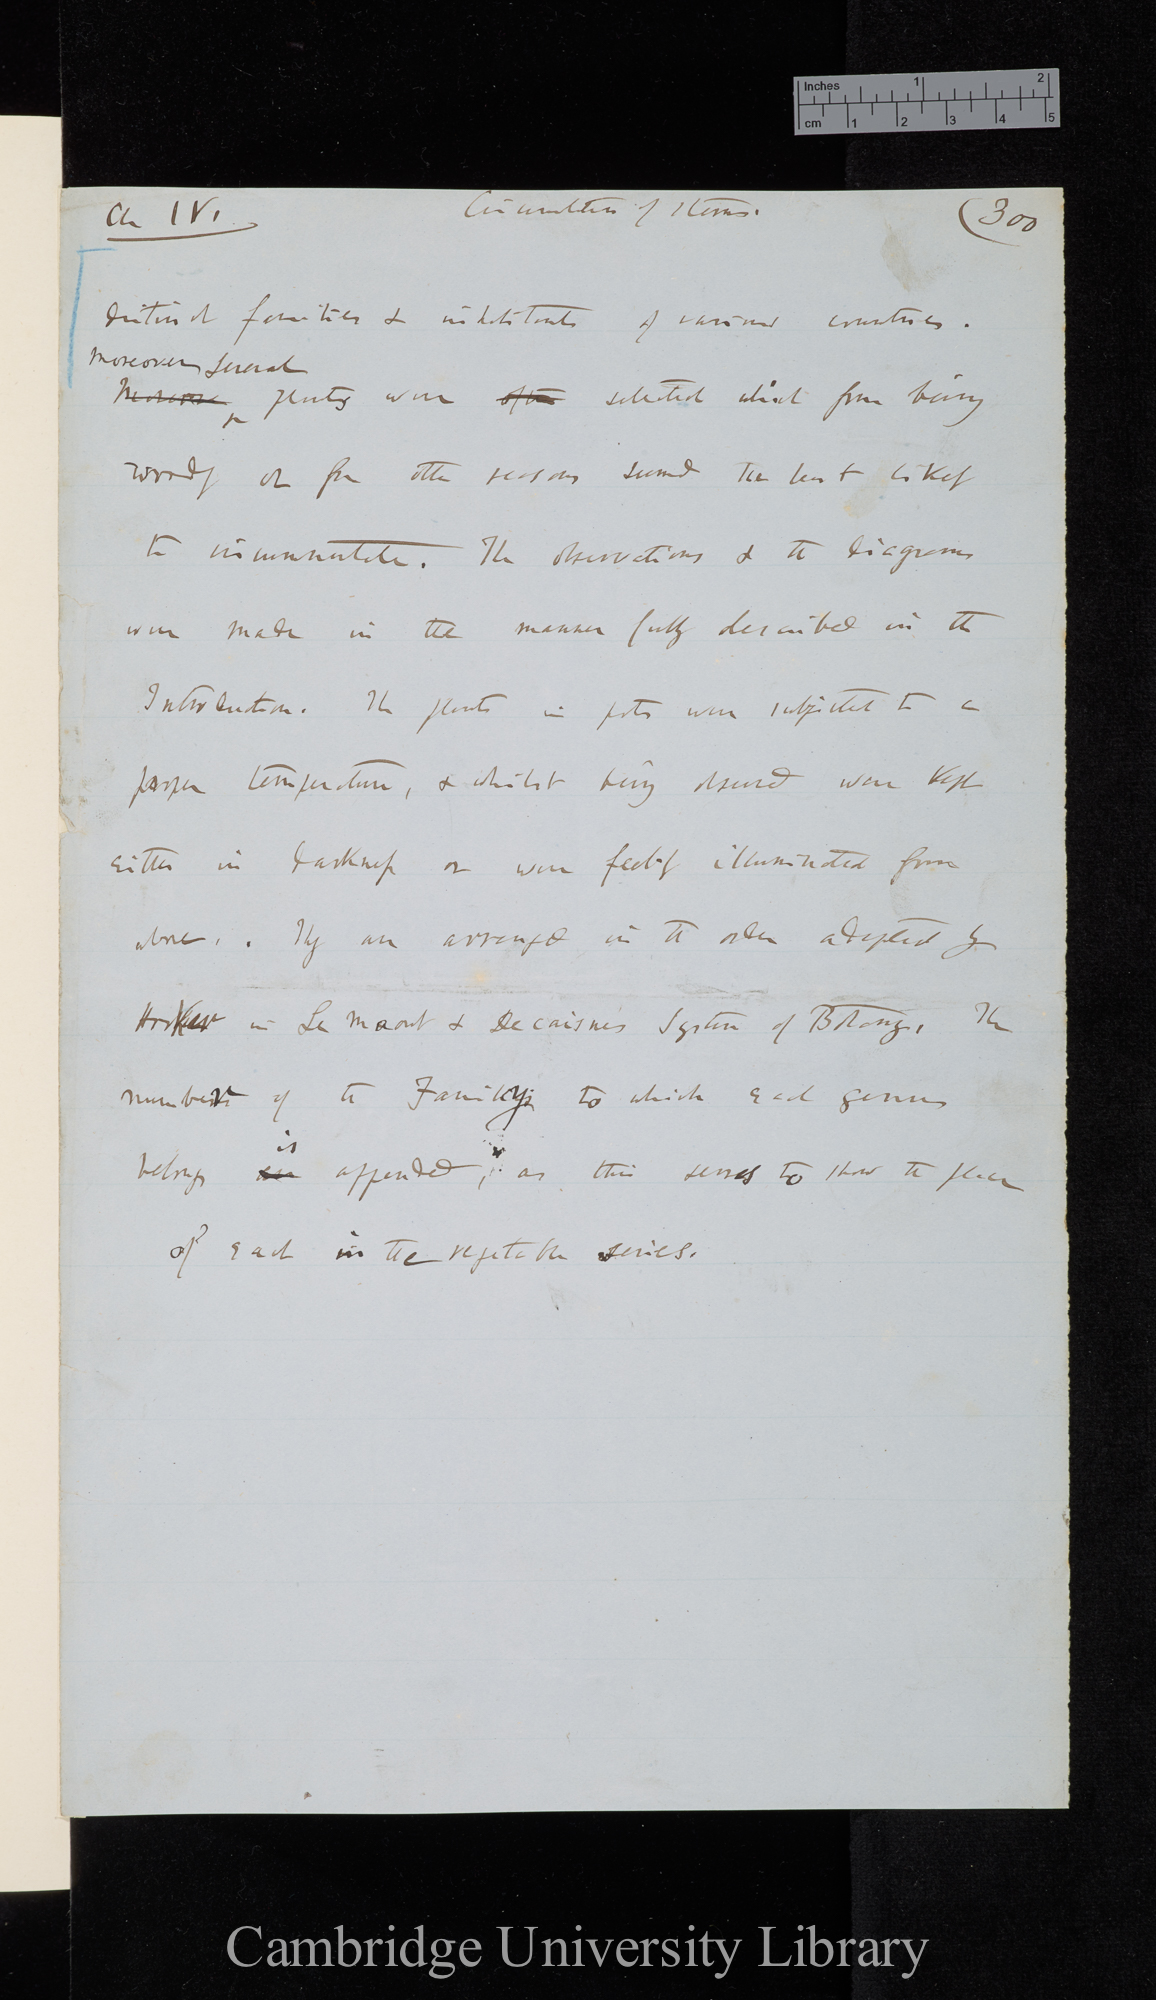 Inches 1 2
cm 1 2 3 4 5
Ch IV. Circumnutation of Stems. (300
distinct families & inhabitants of various countries.
Moreover several
Moreover plants were often selected which from being
woody or from other reasons seemed the least likely
to circumnutate. The observations & the diagrams
were made in the manner fully described in the
Introduction. The plants in pots were subjected to a
proper temperature, & whilst being observed were kept
either in darkness or were feebly illuminated from
above. They are arranged in the order adopted by
Hooker in Le Maout & Decaisne's System of Botany. The
number of the Family to which each genus
is
belongs are appended, as this serves to show the place
of each in the vegetable series.
Cambridge University Library